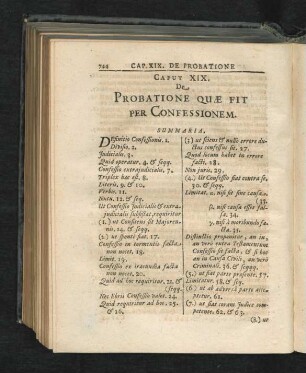 744 CAP. XIX. DE PROBATIONE
CAPUT XIX.
De
PROBATIONE QUÆ FIT
PER CONFESSIONEM.
SUMMARIA.
DEfinitio Confessionis. 1.
Divisio. 2.
Judicialis. 3.
Quid operatur. 4. & seqq.
Confessio extrajudicialis. 7.
Triplex hæc est. 8.
Literis. 9. & 10.
Verbis. 11.
Nutu. 12. & seq.
Ut Confessio Judicialis & extra-
judicialis subsistat requiritur
(1.) ut Confitens sit Majoren-
nis. 14. & seqq.
(2.) ut sponte fiat. 17.
Confessio in tormentis facta,
non valet. 18.
Limit. 19.
Confessio seu tractusta facta
non valet. 20.
Quid ad hoc requiritur. 21. &
seqq.
Nec Ebrii Confessio valet. 24.
Quid requiritur ad hoc. 25.
& 26.
(3) ut sciens & nullo errore du-
ctus confessus sit. 27.
Quid locum habet in errore
facti. 28.
Non juris. 29.
(4.) Ut Confessio fiat contra se.
30. & seqq.
Limitat. n. nisi sit sine causa.
33.
n. nisi causa esset fal-
sa. 34.
n. nisi à moribundo fa-
cta. 35.
Distinctio proponitur, an in,
an verò extra Testamentum
Confessio sit facta, & si hoc
an in Causâ Civili, an verò
Criminali. 36. & seqqq.
(5.) ut fiat parte præsente. 57.
Limitatur. 58. & sqq.
(6.) ut ab adversâ parte acce-
ptetur. 61.
(7.) ut fiat coram Judice com-
petente. 62. & 63.
(8.) ut